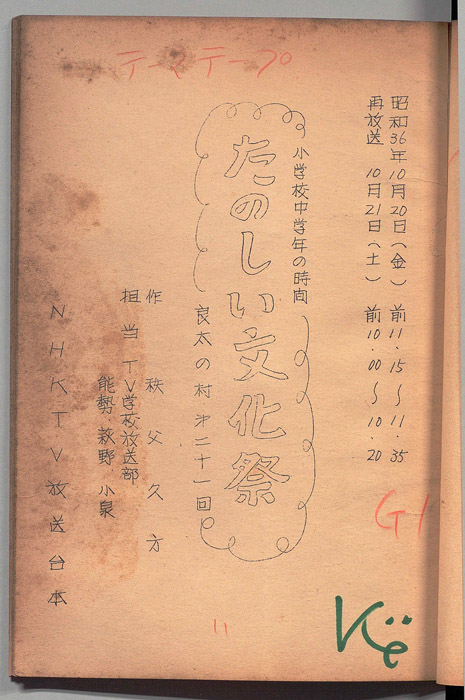 テーマテープ
昭和36年10月20日(金) 前11.15〜11.35
再放送 10月21日(土) 前10.00〜10.20
小学校中学年の時間
たのしい文化祭
良太の村 才二十一回
作 秩父久方
担当 TV学校放送部
能勢 萩野 小泉
NHKTV放送台本
G1
11